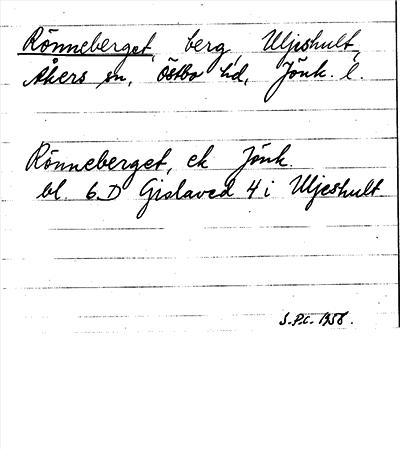 Rönneberget, berg, Uljeshult,
Åkers sn, Östbo hd, Jönk. l.
Rönneberget, ek Jönk.
bl. 6.D Gislaved 4 i Uljeshult.
S.P.C. 1958.